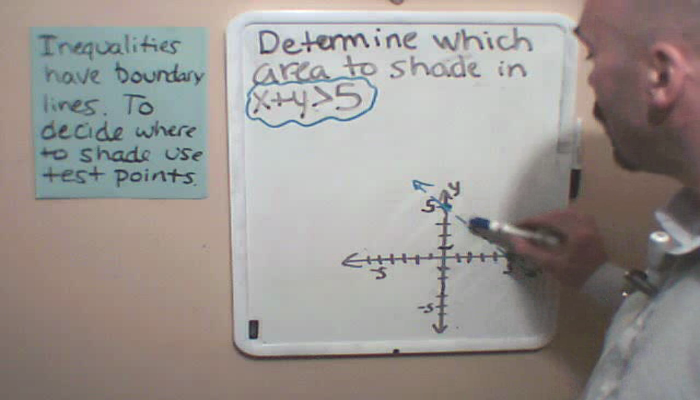 Inequalities
have boundary
lines. To
decide where
to shade use
test points.
Determine which
area to shade in
x+y>5
y
5
-5
-5